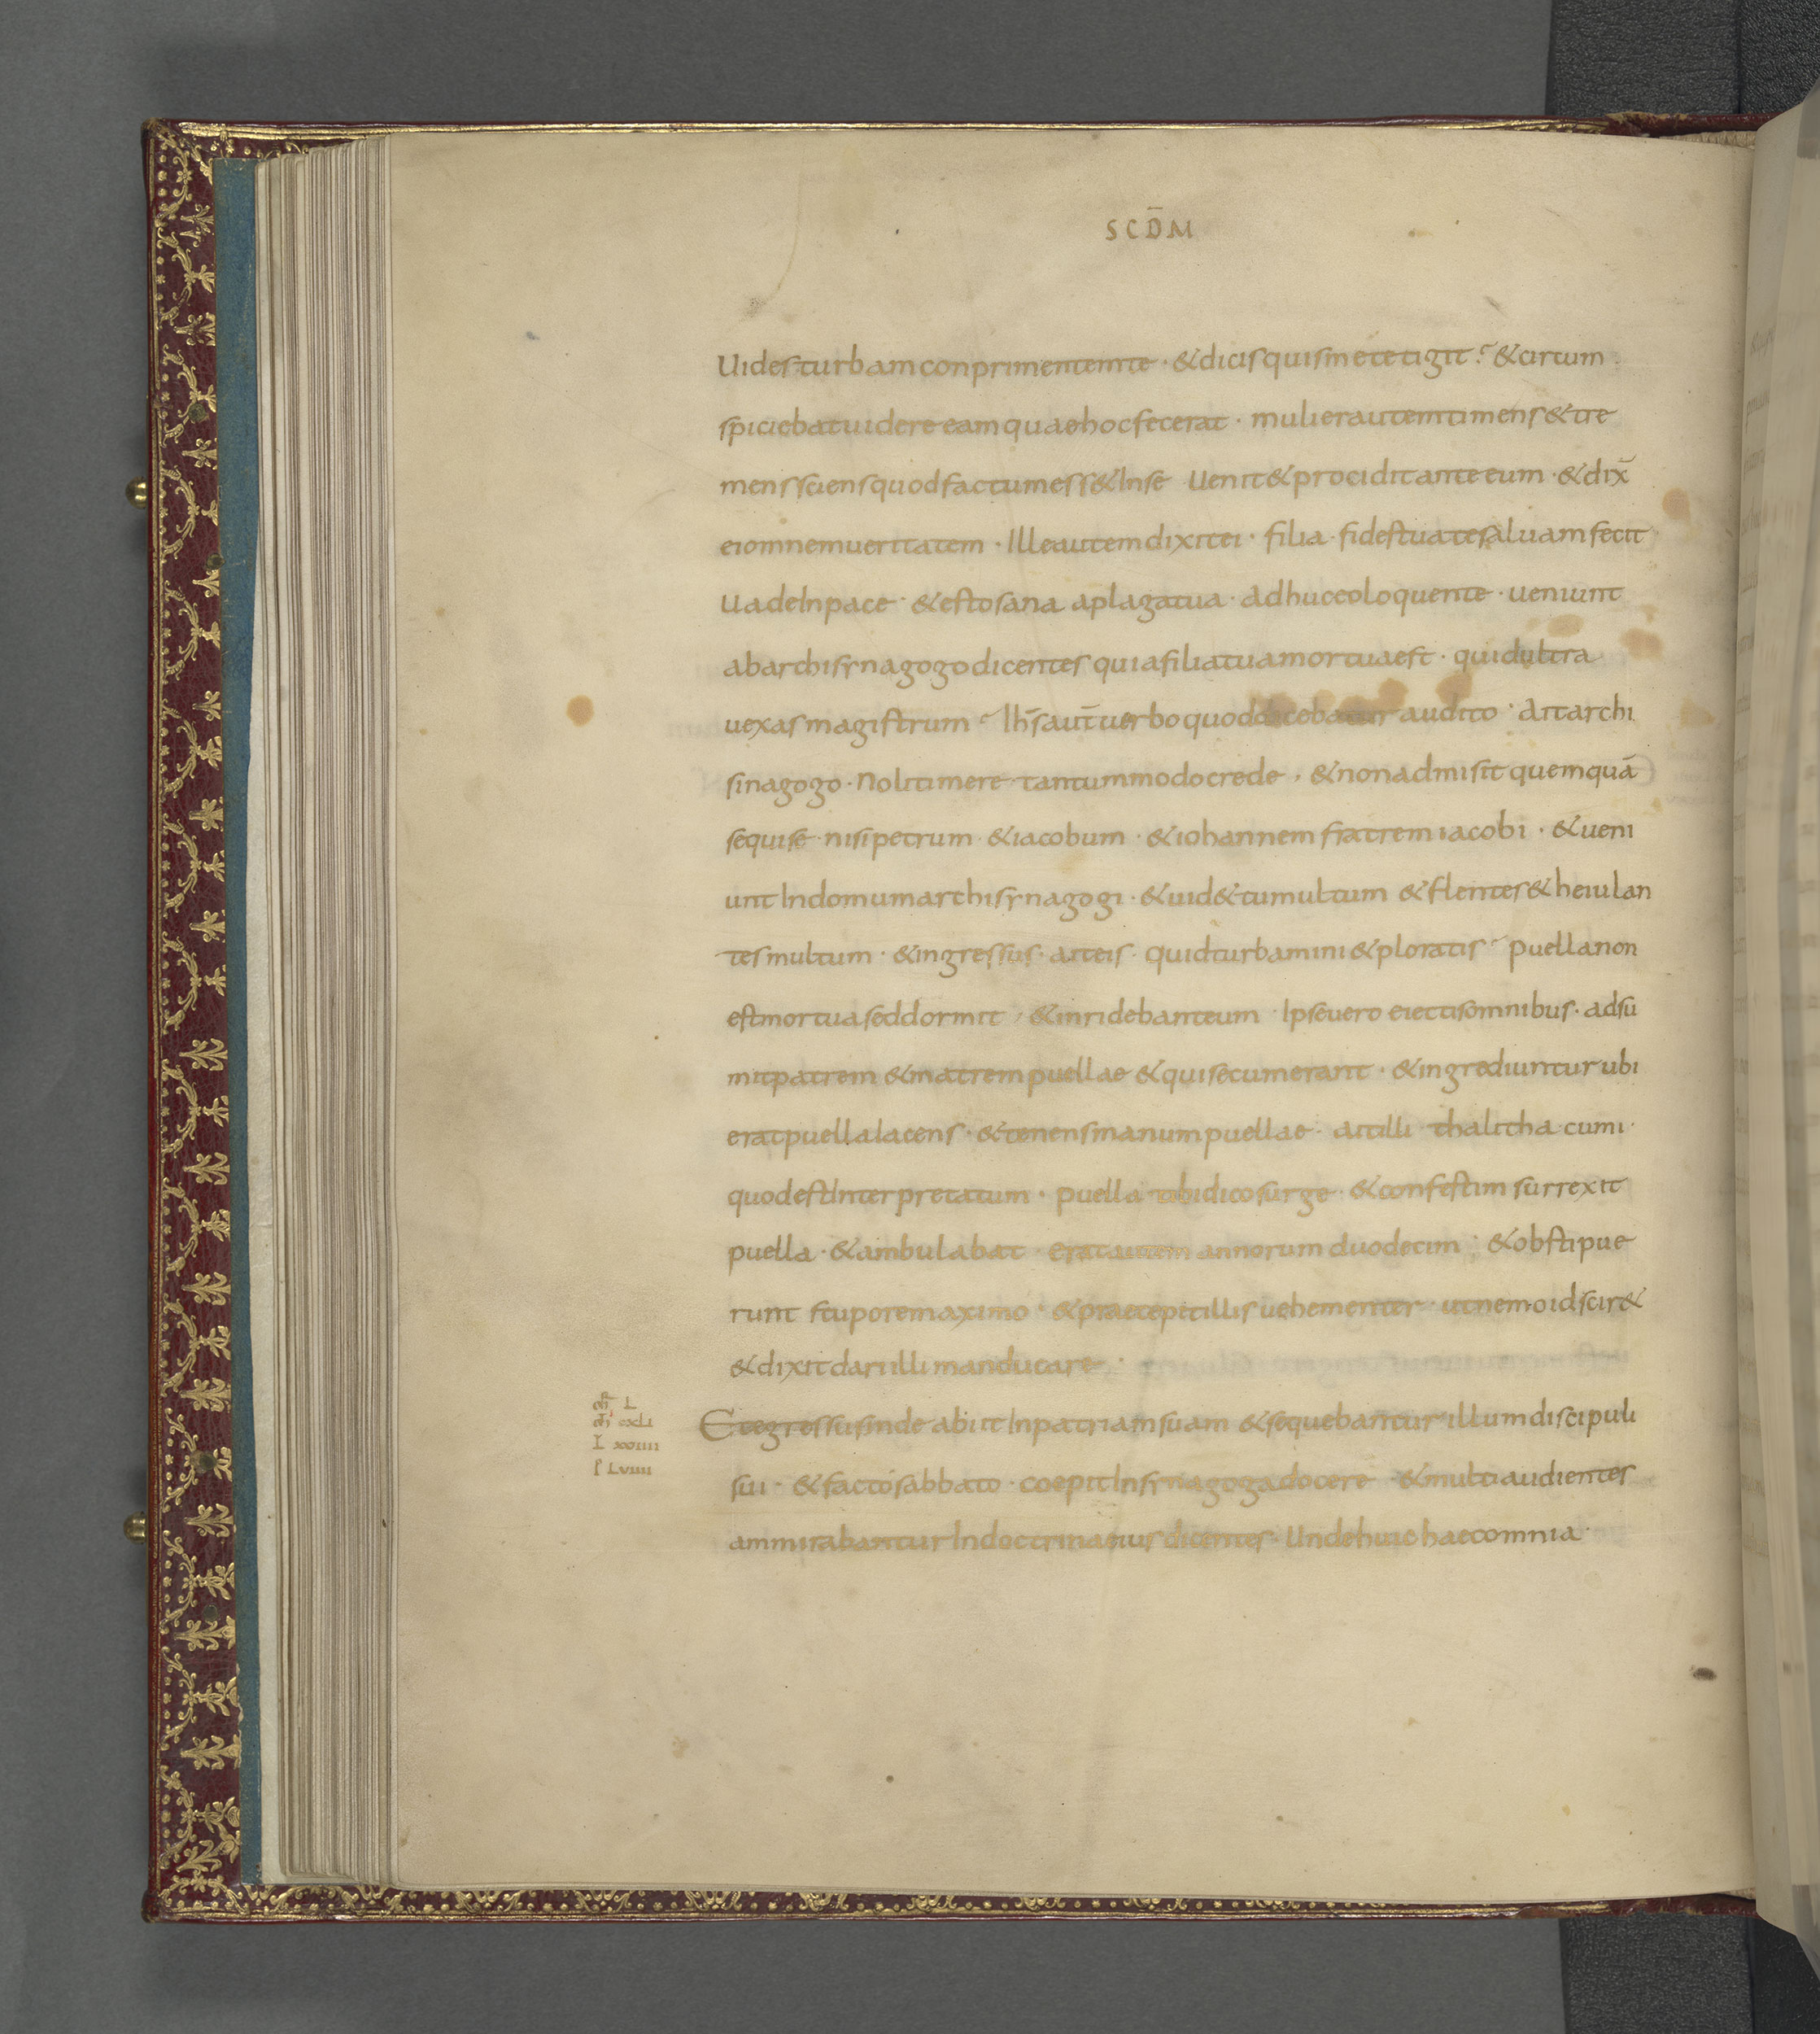 SCD̄M
Uides turbam conprimentem te · & dicis quis me tetigit? & circum
spiciebat uidere eam quae hoc fecerat · mulier autem timens & tre
mens sciens quod factum ess& In se Uenit & procidit ante eum · & dix̄
ei omnem ueritatem · Ille autem dixit ei · filia · fides tua te saluam fecit
Uade In pace · & esto sana a plaga tua · adhuc eo loquente · ueniunt
ab archisynagogo dicentes quia filia tua mortua est · quid ultra
uexas magistrum? Ih̄s aut̄ uerbo quod dicebatur audito · Ait archi
sinagogo · Noli timere tantummodo crede · & non admisit quemquā
sequi se · nisi petrum · & iacobum · & iohannem fratrem iacobi · & ueni
unt In domum archisynagogi · & uid& tumultum & flentes & heiulan
tes multum · & ingressus · ait eis · quid turbamini & ploratis? puella non
est mortua sed dormit · & inridebant eum · Ipse uero eiectis omnibus · adsu
mit patrem & matrem puellae & qui secum erant · & ingrediuntur ubi
erat puella Iacens · & tenens manum puellae · ait illi thalitha cumi ·
quod est Interpretatum · puella tibi dico surge · & confestim surrexit
puella · & ambulabat erat autem annorum duodecim · & obstipue
runt stupore maximo · & praecepit illis uehementer ut nemo id scir&
& dixit dari illi manducare ·
Et egressus inde abiit In patriam suam & sequebantur illum discipuli
L
cxli
I xxiiii
l Lviiii
sui · & facto sabbato · coepit In synagoga docere · & multi audientes
ammirabantur In doctrina eius dicentes · Unde huic haec omnia ·